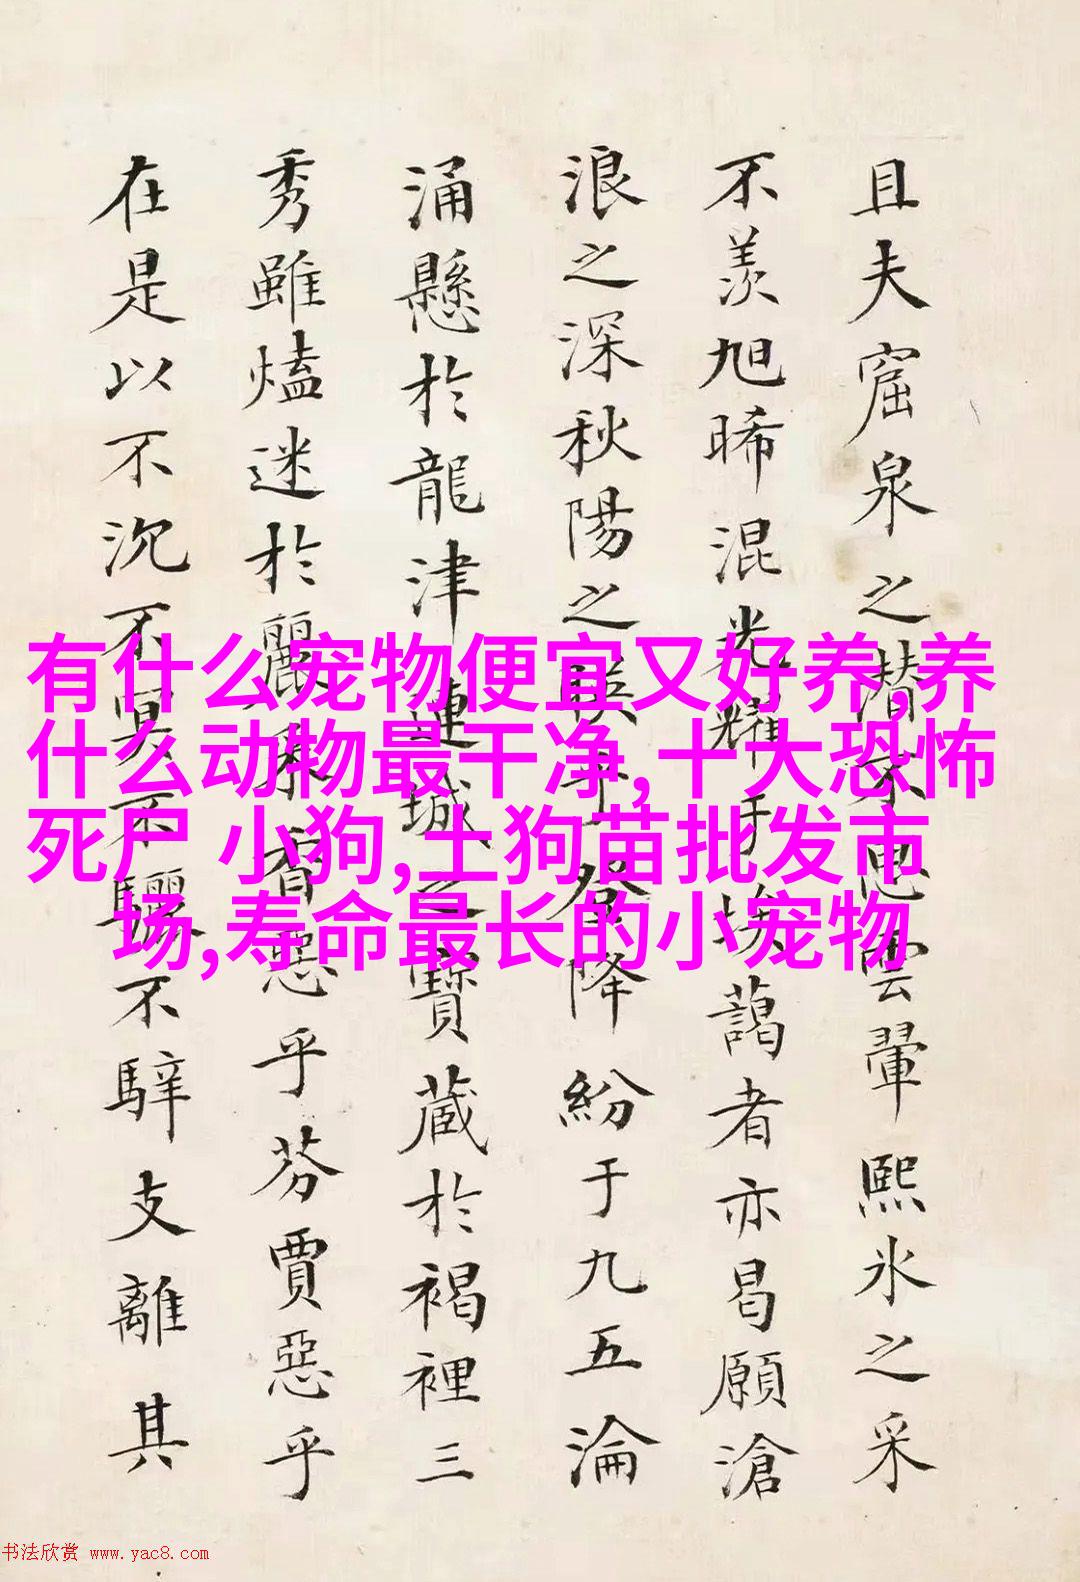 且夫窟泉之潜不思雲翬熙氷之采
不羨旭晞混光耀于埃藹者亦曷願滄
浪之深秋陽之映
登降紛于九五淪
涌懸於龍津連城之寶藏於褐裡三
秀雖熆迷於麗采智惡乎芬賈惡乎
在是以不沉不冥不驪不騂支離其
有什么宠物便宜又好养,养
什么动物最干净,十大恐怖
死尸 小狗,土狗苗批发市
场,寿命最长的小宠物
书法欣赏 www.yac8.com